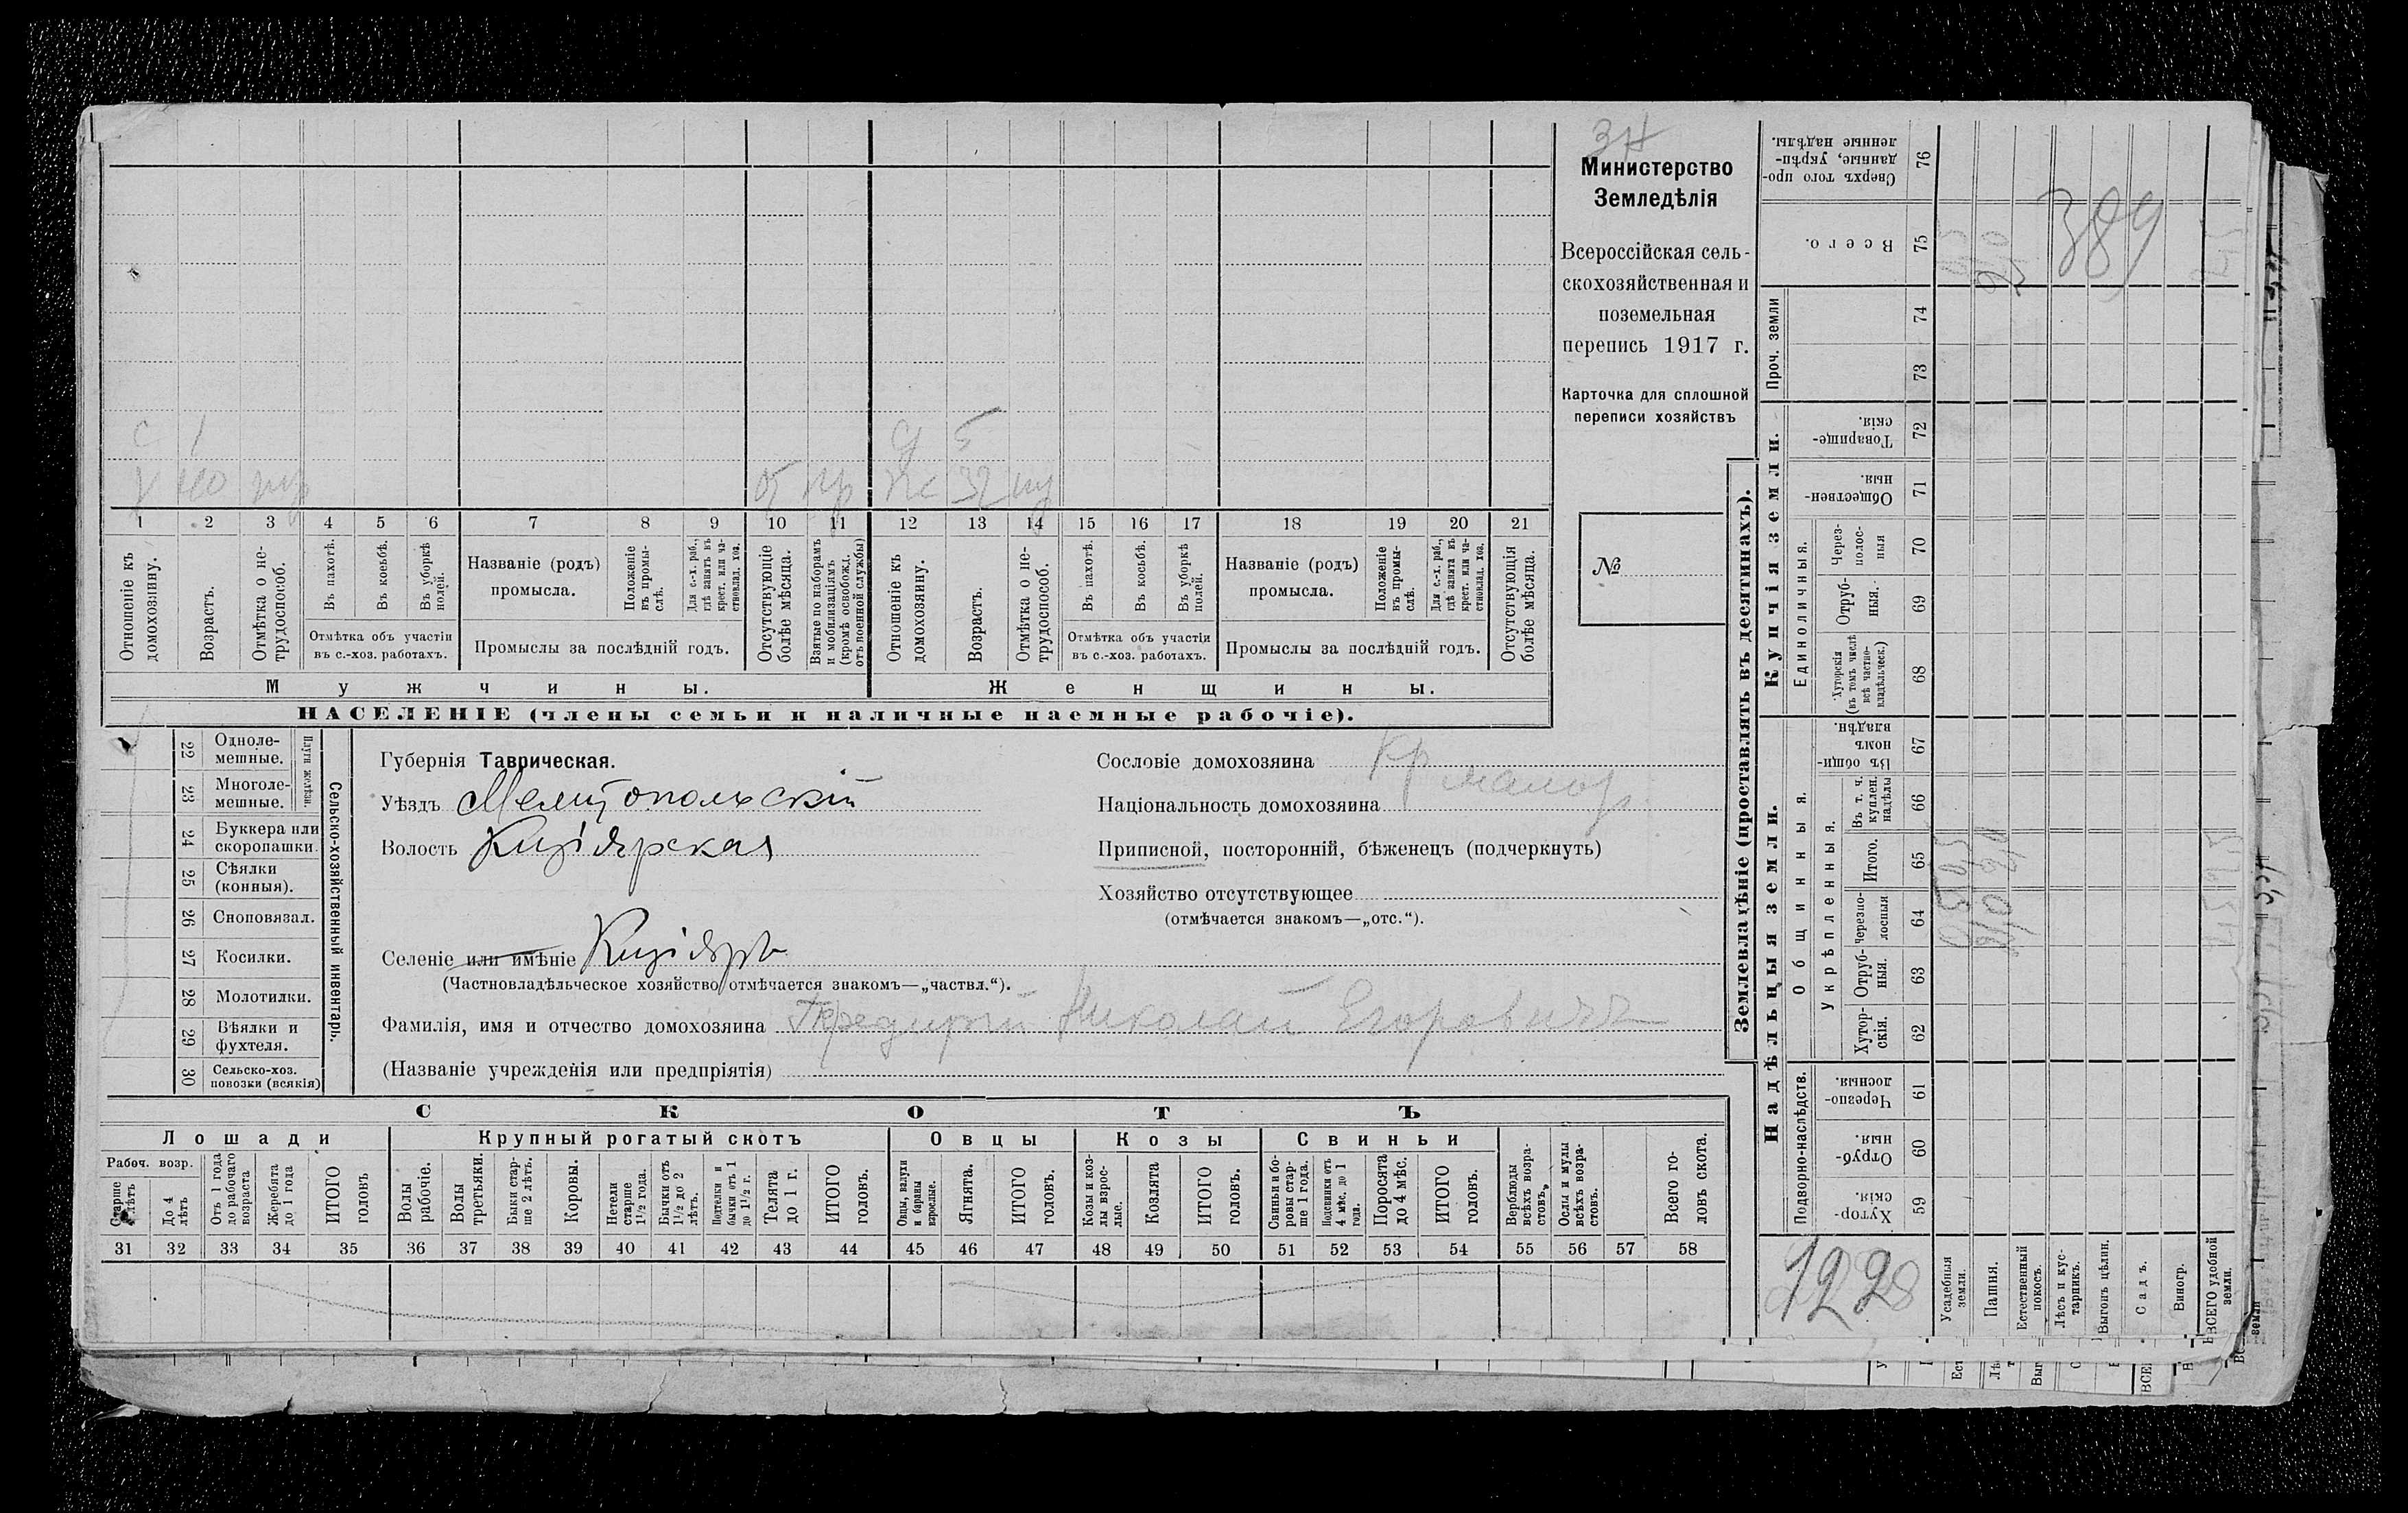 Министерство
Земледѣлія
Всероссійская сель-
скохозяйственная и
поземельная
перепись 1917 г.
Карточка для сплошной
переписи хозяйствъ
№
с 1
х 40
д 5
ж 32
1 2 3 4 5 6 7 8 9 10 11 12 13 14 15 16 17 18 19 20 21
Отношеніе къ домохозяину.
Возрастъ.
Отмѣтка о не-трудоспособ.
Въ пахотѣ.
Въ косьбѣ.
Въ уборкѣ полей.
Отмѣтка объ участіи
въ с.-хоз. работахъ.
Названіе (родъ)
промысла.
Положеніе въ промы-слѣ.
Для с.-х. раб., гдѣ занятъ въ крест. или ча-стновлад. хоз.
Промыслы за послѣдній годъ.
Отсутствующіе болѣе мѣсяца.
Взятые по наборамъ и мобилизаціямъ (кромѣ освобожд. отъ военной службы)
Отношеніе къ домохозяину.
Возрастъ.
Отмѣтка о не-трудоспособ.
Въ пахотѣ.
Въ косьбѣ.
Въ уборкѣ полей.
Отмѣтка объ участіи
въ с.-хоз. работахъ.
Названіе (родъ)
промысла.
Положеніе въ промы-слѣ.
Для с.-х. раб., гдѣ занята въ крест. или ча-стновлад. хоз.
Промыслы за послѣдній годъ.
Отсутствующія болѣе мѣсяца.
Мужчины.
Женщины.
НАСЕЛЕНІЕ (члены семьи и наличные наемные рабочіе).
22 Одноле-мешные.
23 Многоле-мешные.
Плуги желѣзн.
24 Буккера или скоропашки.
25 Сѣялки (конныя).
26 Сноповязал.
27 Косилки.
28 Молотилки.
29 Вѣялки и фухтеля.
30 Сельско-хоз. повозки (всякія)
Сельско-хозяйственный инвентарь.
Губернія Таврическая.
Уѣздъ Мелитопольскій
Волость Кизіярская
Селеніе или имѣніе Кизіяръ
(Частновладѣльческое хозяйство отмѣчается знакомъ—„частвл.“).
Фамилія, имя и отчество домохозяина Николай Егоровичъ
(Названіе учрежденія или предпріятія)
Сословіе домохозяина Кр
Національность домохозяина малор.
Приписной, посторонній, бѣженецъ (подчеркнуть)
Хозяйство отсутствующее
(отмѣчается знакомъ—„отс.“).
СКОТЪ
Лошади
Крупный рогатый скотъ
Овцы
Козы
Свиньи
Рабоч. возр.
Старше 4 лѣтъ
До 4 лѣтъ
Отъ 1 года до рабочаго возраста
Жеребята до 1 года
ИТОГО головъ
Волы рабочіе.
Волы третьяки.
Быки стар-ше 2 лѣтъ.
Коровы.
Нетели старше 1½ года.
Бычки отъ 1½ до 2 лѣтъ.
Подтелки и бычки отъ 1 до 1½ г.
Телята до 1 г.
ИТОГО головъ.
Овцы, валухи и бараны взрослые.
Ягнята.
ИТОГО головъ.
Козы и коз-лы взрос-лые.
Козлята
ИТОГО головъ.
Свиньи и бо-ровы стар-ше 1 года.
Подсвинки отъ 4 мѣс. до 1 года.
Поросята до 4 мѣс.
ИТОГО головъ.
Верблюды всѣхъ возра-стовъ.
Ослы и мулы всѣхъ возра-стовъ.
Всего го-ловъ скота.
31 32 33 34 35 36 37 38 39 40 41 42 43 44 45 46 47 48 49 50 51 52 53 54 55 56 57 58
Землевладѣніе (проставлять въ десятинахъ).
Надѣльныя земли.
Купчія земли.
Проч. земли
Подворно-наслѣдств.
Общинныя.
Укрѣпленныя.
Единоличныя.
Хутор-скія. 59
Отруб-ныя. 60
Черезпо-лосныя. 61
Хутор-скія. 62
Отруб-ныя. 63
Черезпо-лосныя 64
Итого. 65
Въ т. ч. куплен. надѣлы 66
Въ общи-номъ владѣн. 67
Хуторскія (въ томъ числѣ всѣ частно-владѣльческ.) 68
Отруб-ныя. 69
Через-полос-ныя 70
Обществен-ныя. 71
Товарище-скія. 72
73
74
Всего. 75
Сверхъ того про-данные, укрѣп-ленные надѣлы. 76
389
1228
Усадебныя земли.
Пашня.
Естественный покосъ.
Лѣсъ и кус-тарникъ.
Выгонъ цѣлин.
Садъ.
Виногр.
ВСЕГО удобной земли.
земли